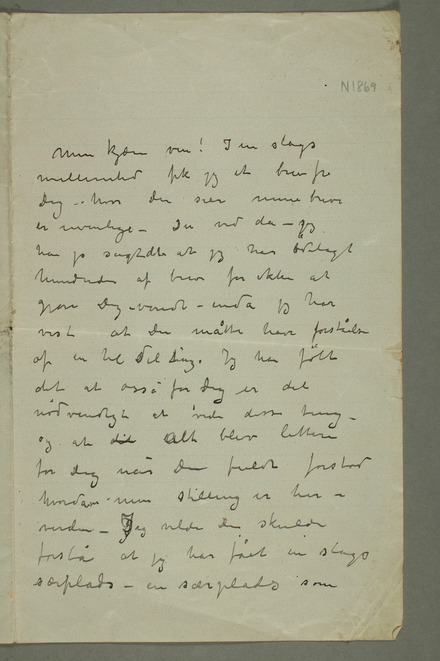 N1869
Min kjære ven! I en slags
mellemtid fik jeg et brev fra
Dig – hvor du sier mine breve
er uvenlige – Du ved da – jeg
har jo sagt dte at jeg har ødelagt
hundreder af breve for ikke at
gjøre Dig vondt – enda jeg har
vist at Du måtte have forståelse
af en hel del Ding. Jeg har følt
det at også for Dig er det
nødvendigt at vide disse ting –
og at alt blev lettere
for Dig når Du fuldt forstod
hvordan min stilling er her i
verden – Jeg vilde du skulde
forstå at jeg har fået en slags
særplads – en særplads som